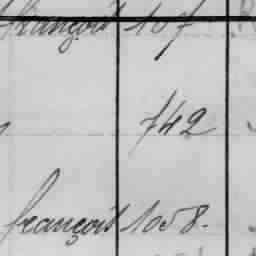 françois 107
742
françois 1058.